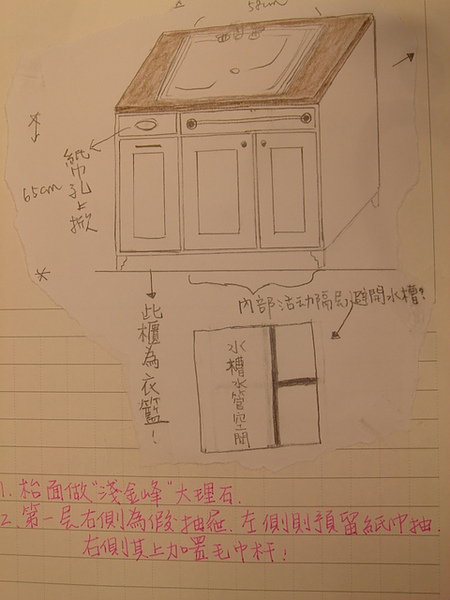 58cm
65cm
紙巾孔上掀
內部活动隔层避開水槽!
此櫃為衣籃!
水槽水管空間
1. 枱面做"淺金峰"大理石.
2. 第一层右側為假抽屜. 左側則預留紙巾抽.
右側其上加置毛巾杆!